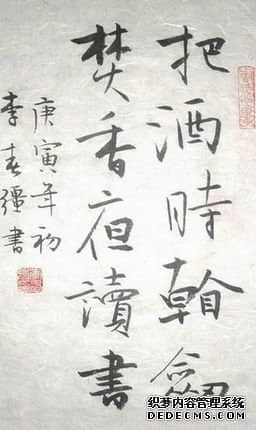 把酒時看劍
焚香夜讀書
庚寅年初
李春疆書
织梦内容管理系统
DEDECMS.COM